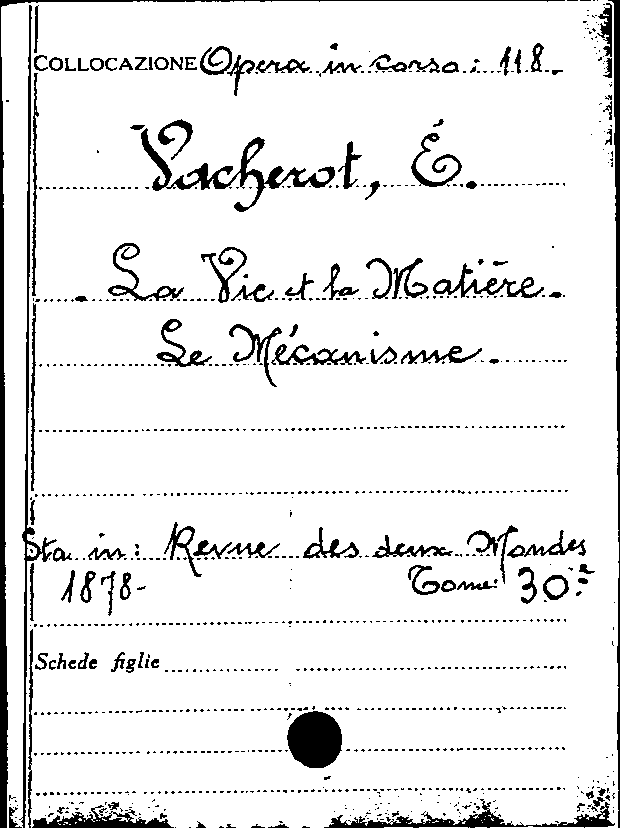 COLLOCAZIONE Opera in corso: 118.
Vacherot, É.
La Vie et la Matière.
Le Mécanisme.
Sta in: Revue des deux Mondes
1878- Tome 30.e
Schede figlie